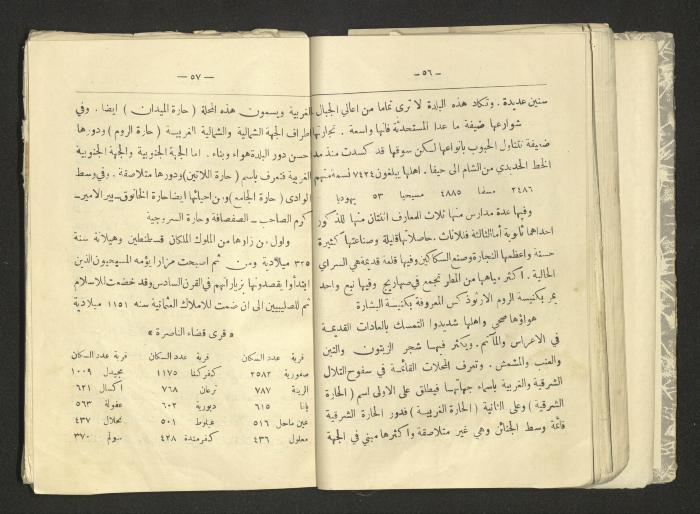 — ٥٦ —
سنين عديدة . وتكاد هذه البلدة لا ترى تماما من اعالي الجبال
شوارعها ضيقة ما عدا المستحدثة فانها واسعة . تجارتها
ضعيفة تتناول الحبوب بانواعها لكن سوقها قد كسدت منذ مد
الخط الحديدي من الشام الى حيفا . اهلها يبلغون ٧٤٢٤ نسمة منهم
٢٤٨٦ مسلما ٤٨٨٥ مسيحيا ٥٣ يهوديا
وفيها عدة مدارس منها ثلاث للمعارف اثنتان منها للذكور
احداهما ثانوية أما الثالثة فللاناث . حاصلاتها قليلة وصناعتها كثيرة
حسنة واعظمها النجارة وصنع السكاكين وفيها قلعة قديمة هي السراي
الحالية . اكثر مياهها من المطر تجمع في صهاريج وفيها نبع واحد
يمر بكنيسة الروم الارثوذكس المعروفة بكنيسة البشارة
هواؤها صحي واهلها شديدوا التمسك بالعادات القديمة
في الاعراس والمآتم . ويكثر فيها شجر الزيتون والتين
والعنب والمشمش . وتعرف المحلات القائمة في سفوح التلال
الشرقية والغربية باسماء جهاتها فيطلق على الاولى اسم ( الحارة
الشرقية ) وعلى الثانية ( الحارة الغربية ) فدور الحارة الشرقية
قائمة وسط الجنائن وهي غير متلاصقة واكثرها مبني في الجهة
— ٥٧ —
الغربية ويسمون هذه المحلة ( حارة الميدان ) ايضا . وفي
اطراف الجهة الشمالية والشمالية الغربية ( حارة الروم ) ودورها
احسن دور البلدة هواء وبناء . اما الجهة الجنوبية والجهة الجنوبية
الغربية فتعرف باسم ( حارة اللاتين ) ودورها متلاصقة . وفي وسط
الوادي ( حارة الجامع ) ومن احيائها ايضا حارة الخانوق ــ بير الامير ــ
كرم الصاحب ــ الصفصافة وحارة السروجية
واول من زارها من الملوك الملكان قسطنطين وهيلانة سنة
٣٢٥ ميلادية ومن ثم اصبحت مزارا يؤمه المسيحيون الذين
ابتدأوا يقصدونها بزياراتهم في القرن السادس وقد خضعت للاسلام
ثم للصليبيين الى ان ضمت للاملاك العثمانية سنة ١١٥١ ميلادية
« قرى قضاء الناصرة »
قرية عدد السكان قرية عدد السكان قرية عدد السكان
صفورية ٢٥٨٢ كفركنا ١١٧٥ مجيدل ١٠٠٩
الرينة ٧٨٧ ترعان ٧٦٨ اكسال ٦٢١
يافا ٦١٥ دبورية ٦٠٢ عفولة ٥٦٣
عين ماحل ٥١٦ عيلوط ٥٠١ نهلال ٤٣٧
معلول ٤٣٦ كفرمندة ٤٢٨ سولم ٣٧٠